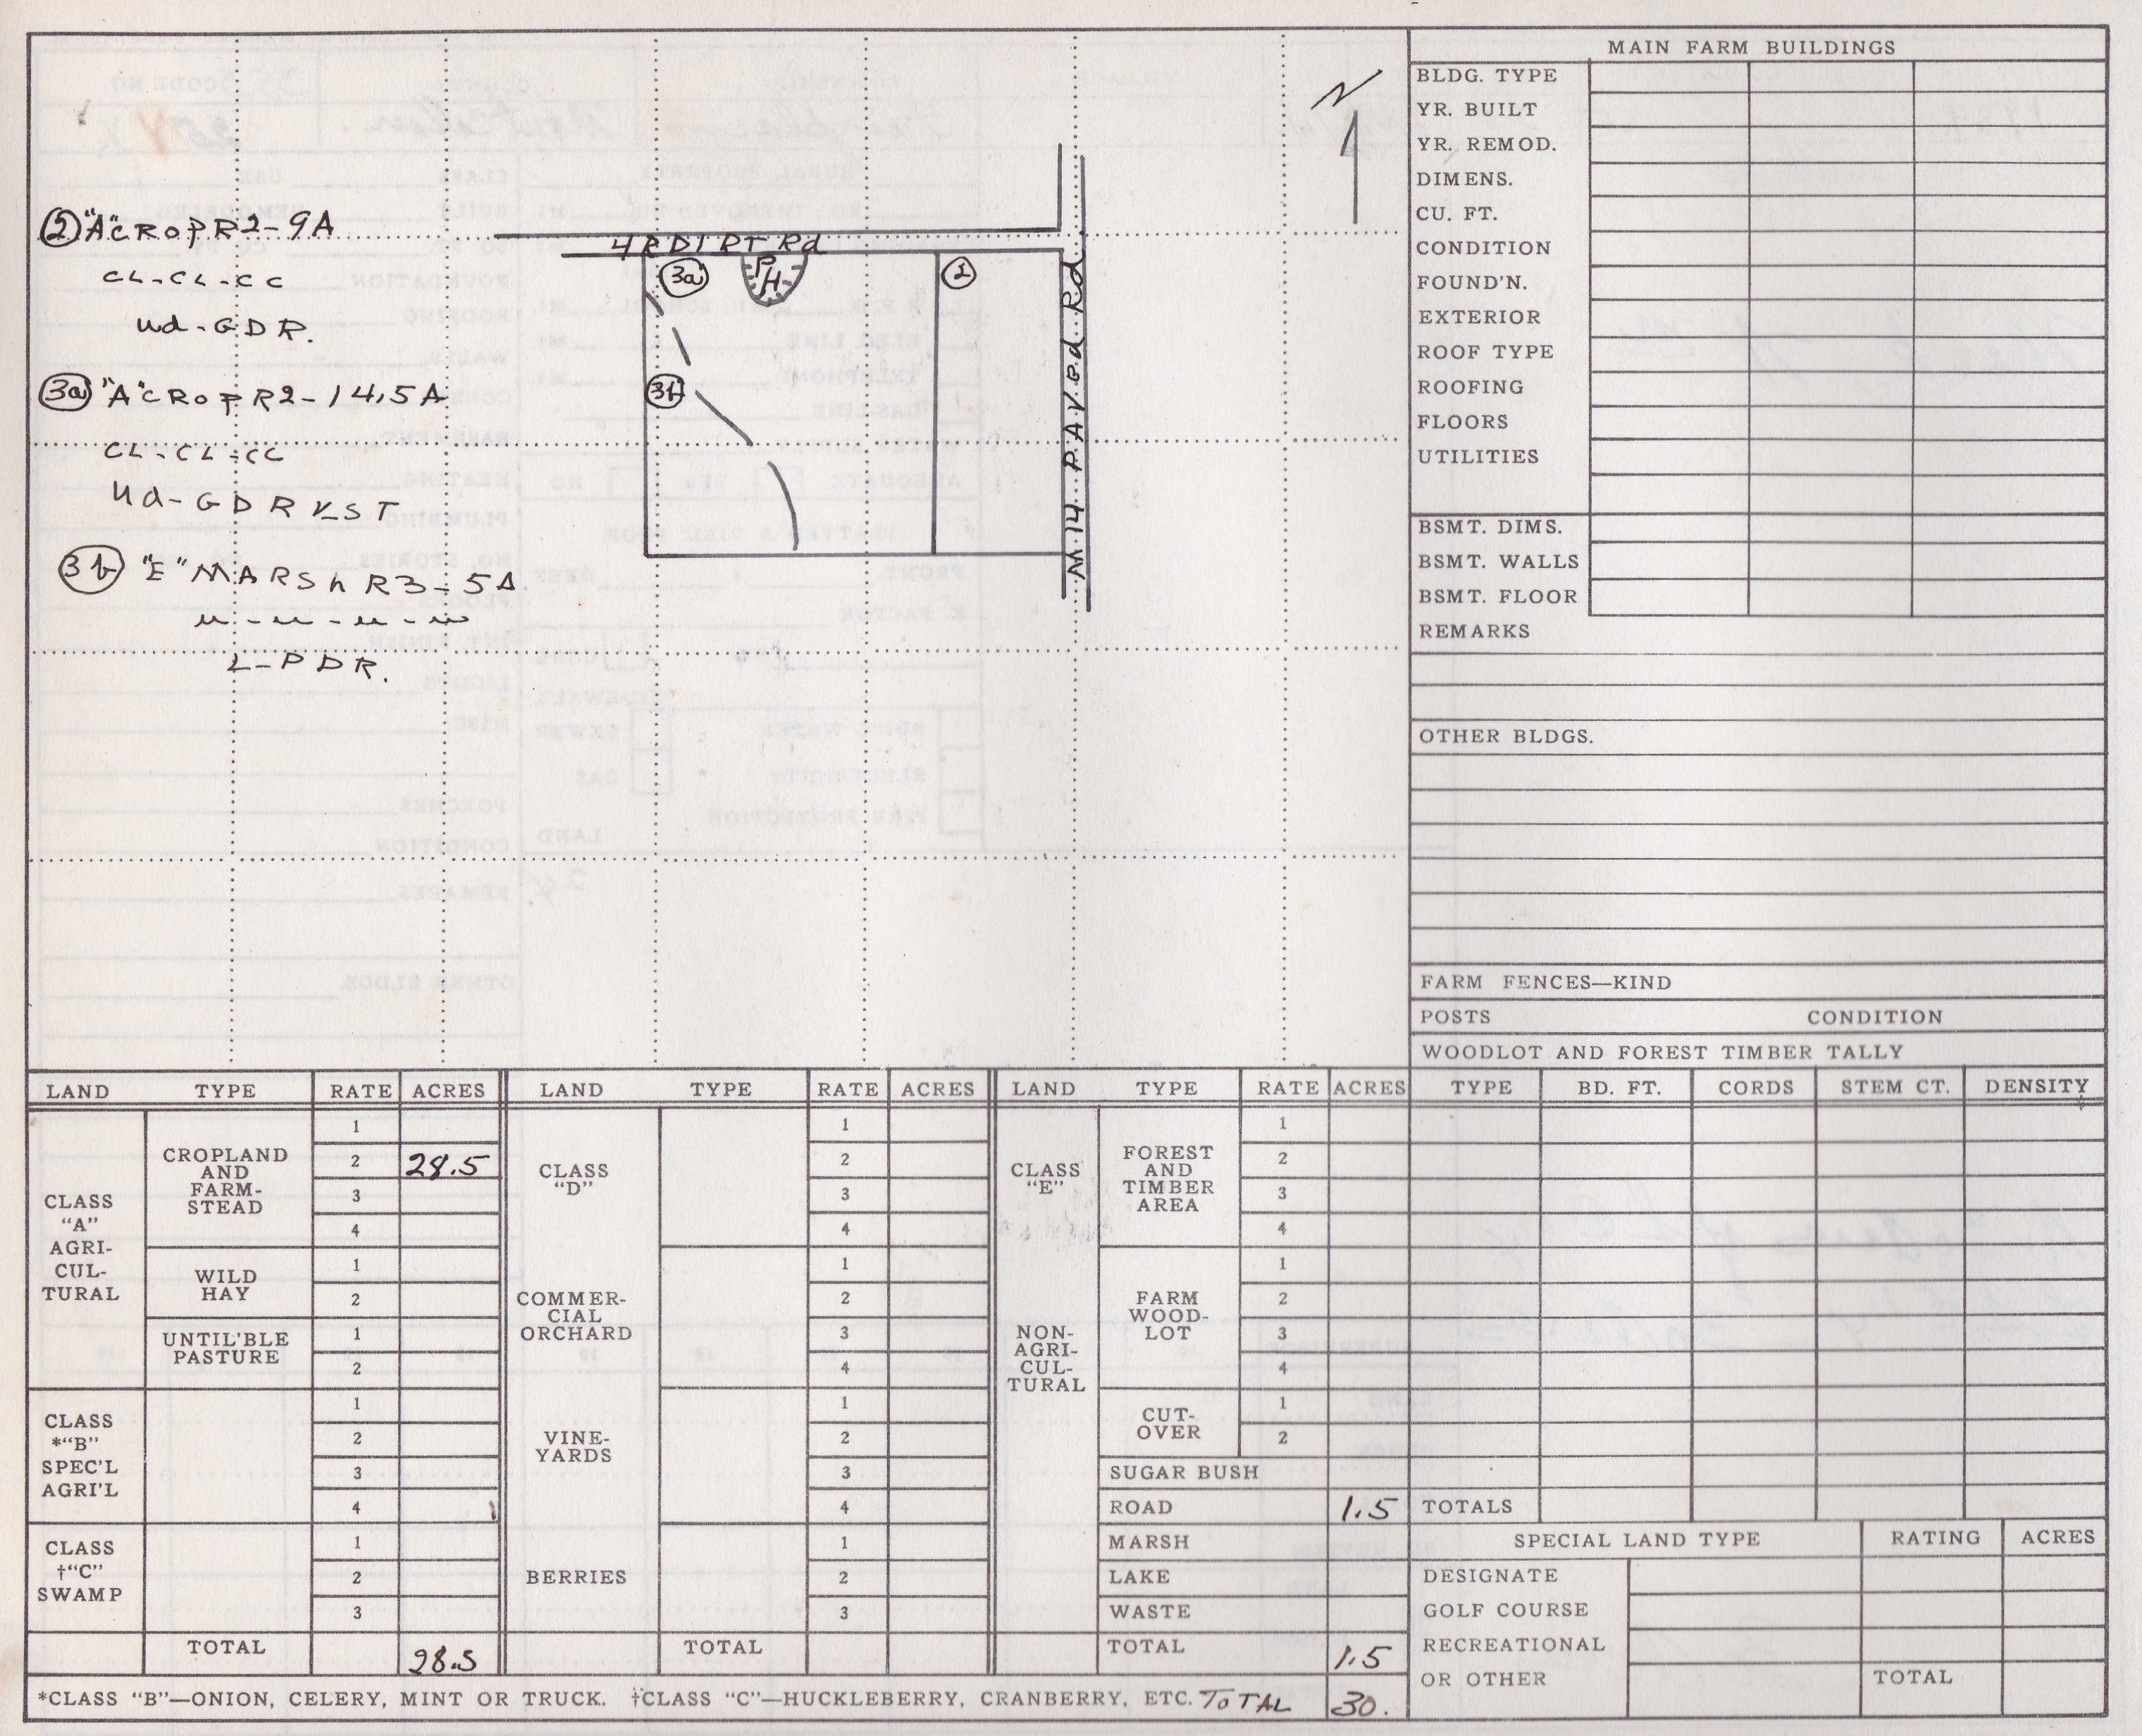 N
② "A" CROP R2-9A
CL-CL-CC
ud-GDR.
3a "A" CROP R2-14.5A
CL-CL-CC
ud-GDR VST
3b "E" MARSh R3-5A
L-PDR.
4R DIRT Rd
3a
PH
2
3b
M 14 PAVed Rd
MAIN FARM BUILDINGS
BLDG. TYPE
YR. BUILT
YR. REMOD.
DIMENS.
CU. FT.
CONDITION
FOUND'N.
EXTERIOR
ROOF TYPE
ROOFING
FLOORS
UTILITIES
BSMT. DIMS.
BSMT. WALLS
BSMT. FLOOR
REMARKS
OTHER BLDGS.
FARM FENCES—KIND
POSTS CONDITION
WOODLOT AND FOREST TIMBER TALLY
TYPE BD. FT. CORDS STEM CT. DENSITY
TOTALS
SPECIAL LAND TYPE RATING ACRES
DESIGNATE
GOLF COURSE
RECREATIONAL
OR OTHER
TOTAL
LAND TYPE RATE ACRES
CLASS
"A"
AGRI-
CUL-
TURAL
CROPLAND
AND
FARM-
STEAD
1
2 28.5
3
4
WILD
HAY
1
2
UNTIL'BLE
PASTURE
1
2
CLASS
*"B"
SPEC'L
AGRI'L
1
2
3
4
CLASS
†"C"
SWAMP
1
2
3
TOTAL 28.5
LAND TYPE RATE ACRES
CLASS
"D"
1
2
3
4
COMMER-
CIAL
ORCHARD
1
2
3
4
VINE-
YARDS
1
2
3
4
BERRIES
1
2
3
TOTAL
LAND TYPE RATE ACRES
CLASS
"E"
NON-
AGRI-
CUL-
TURAL
FOREST
AND
TIMBER
AREA
1
2
3
4
FARM
WOOD-
LOT
1
2
3
4
CUT-
OVER
1
2
SUGAR BUSH
ROAD 1.5
MARSH
LAKE
WASTE
TOTAL 1.5
*CLASS "B"—ONION, CELERY, MINT OR TRUCK. †CLASS "C"—HUCKLEBERRY, CRANBERRY, ETC. TOTAL 30.